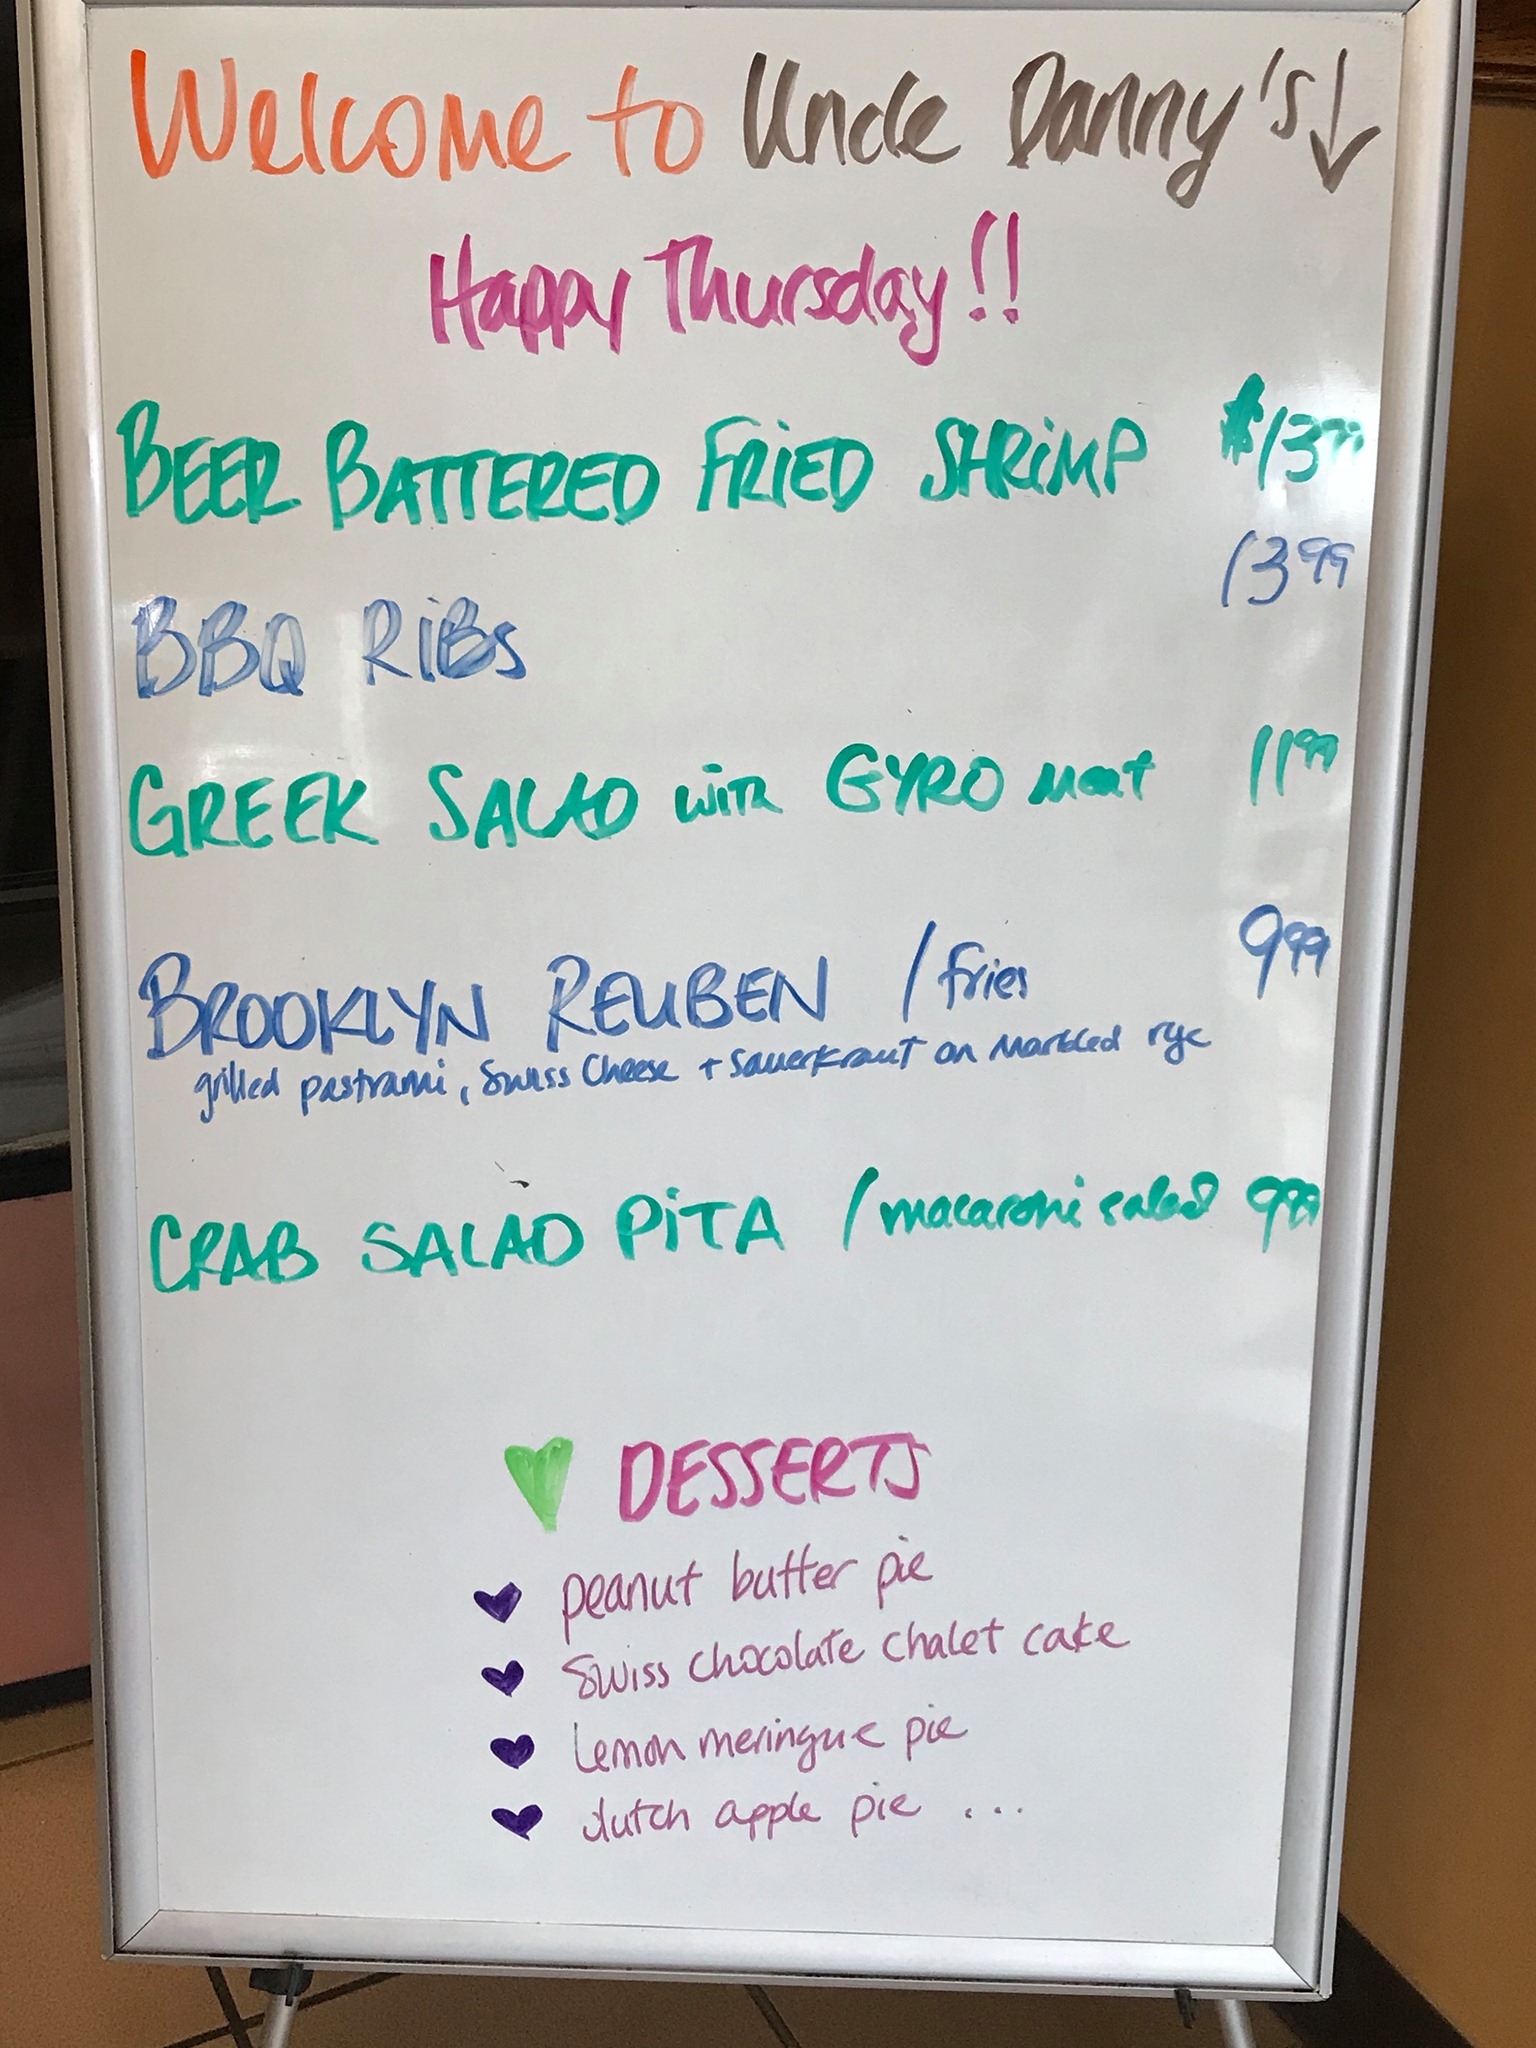 Welcome to Uncle Danny's ↓
Happy Thursday!!
BEER BATTERED FRIED SHRiMP $13.99
BBQ RiBs 13.99
GREEK SALAD with GYRO meat 11.99
BROOKLYN REUBEN / fries 9.99
grilled pastrami, Swiss Cheese + Sauerkraut on Marbled rye
CRAB SALAD PiTA / macaroni salad 9.99
DESSERTS
peanut butter pie
Swiss chocolate chalet cake
Lemon meringue pie
dutch apple pie ...